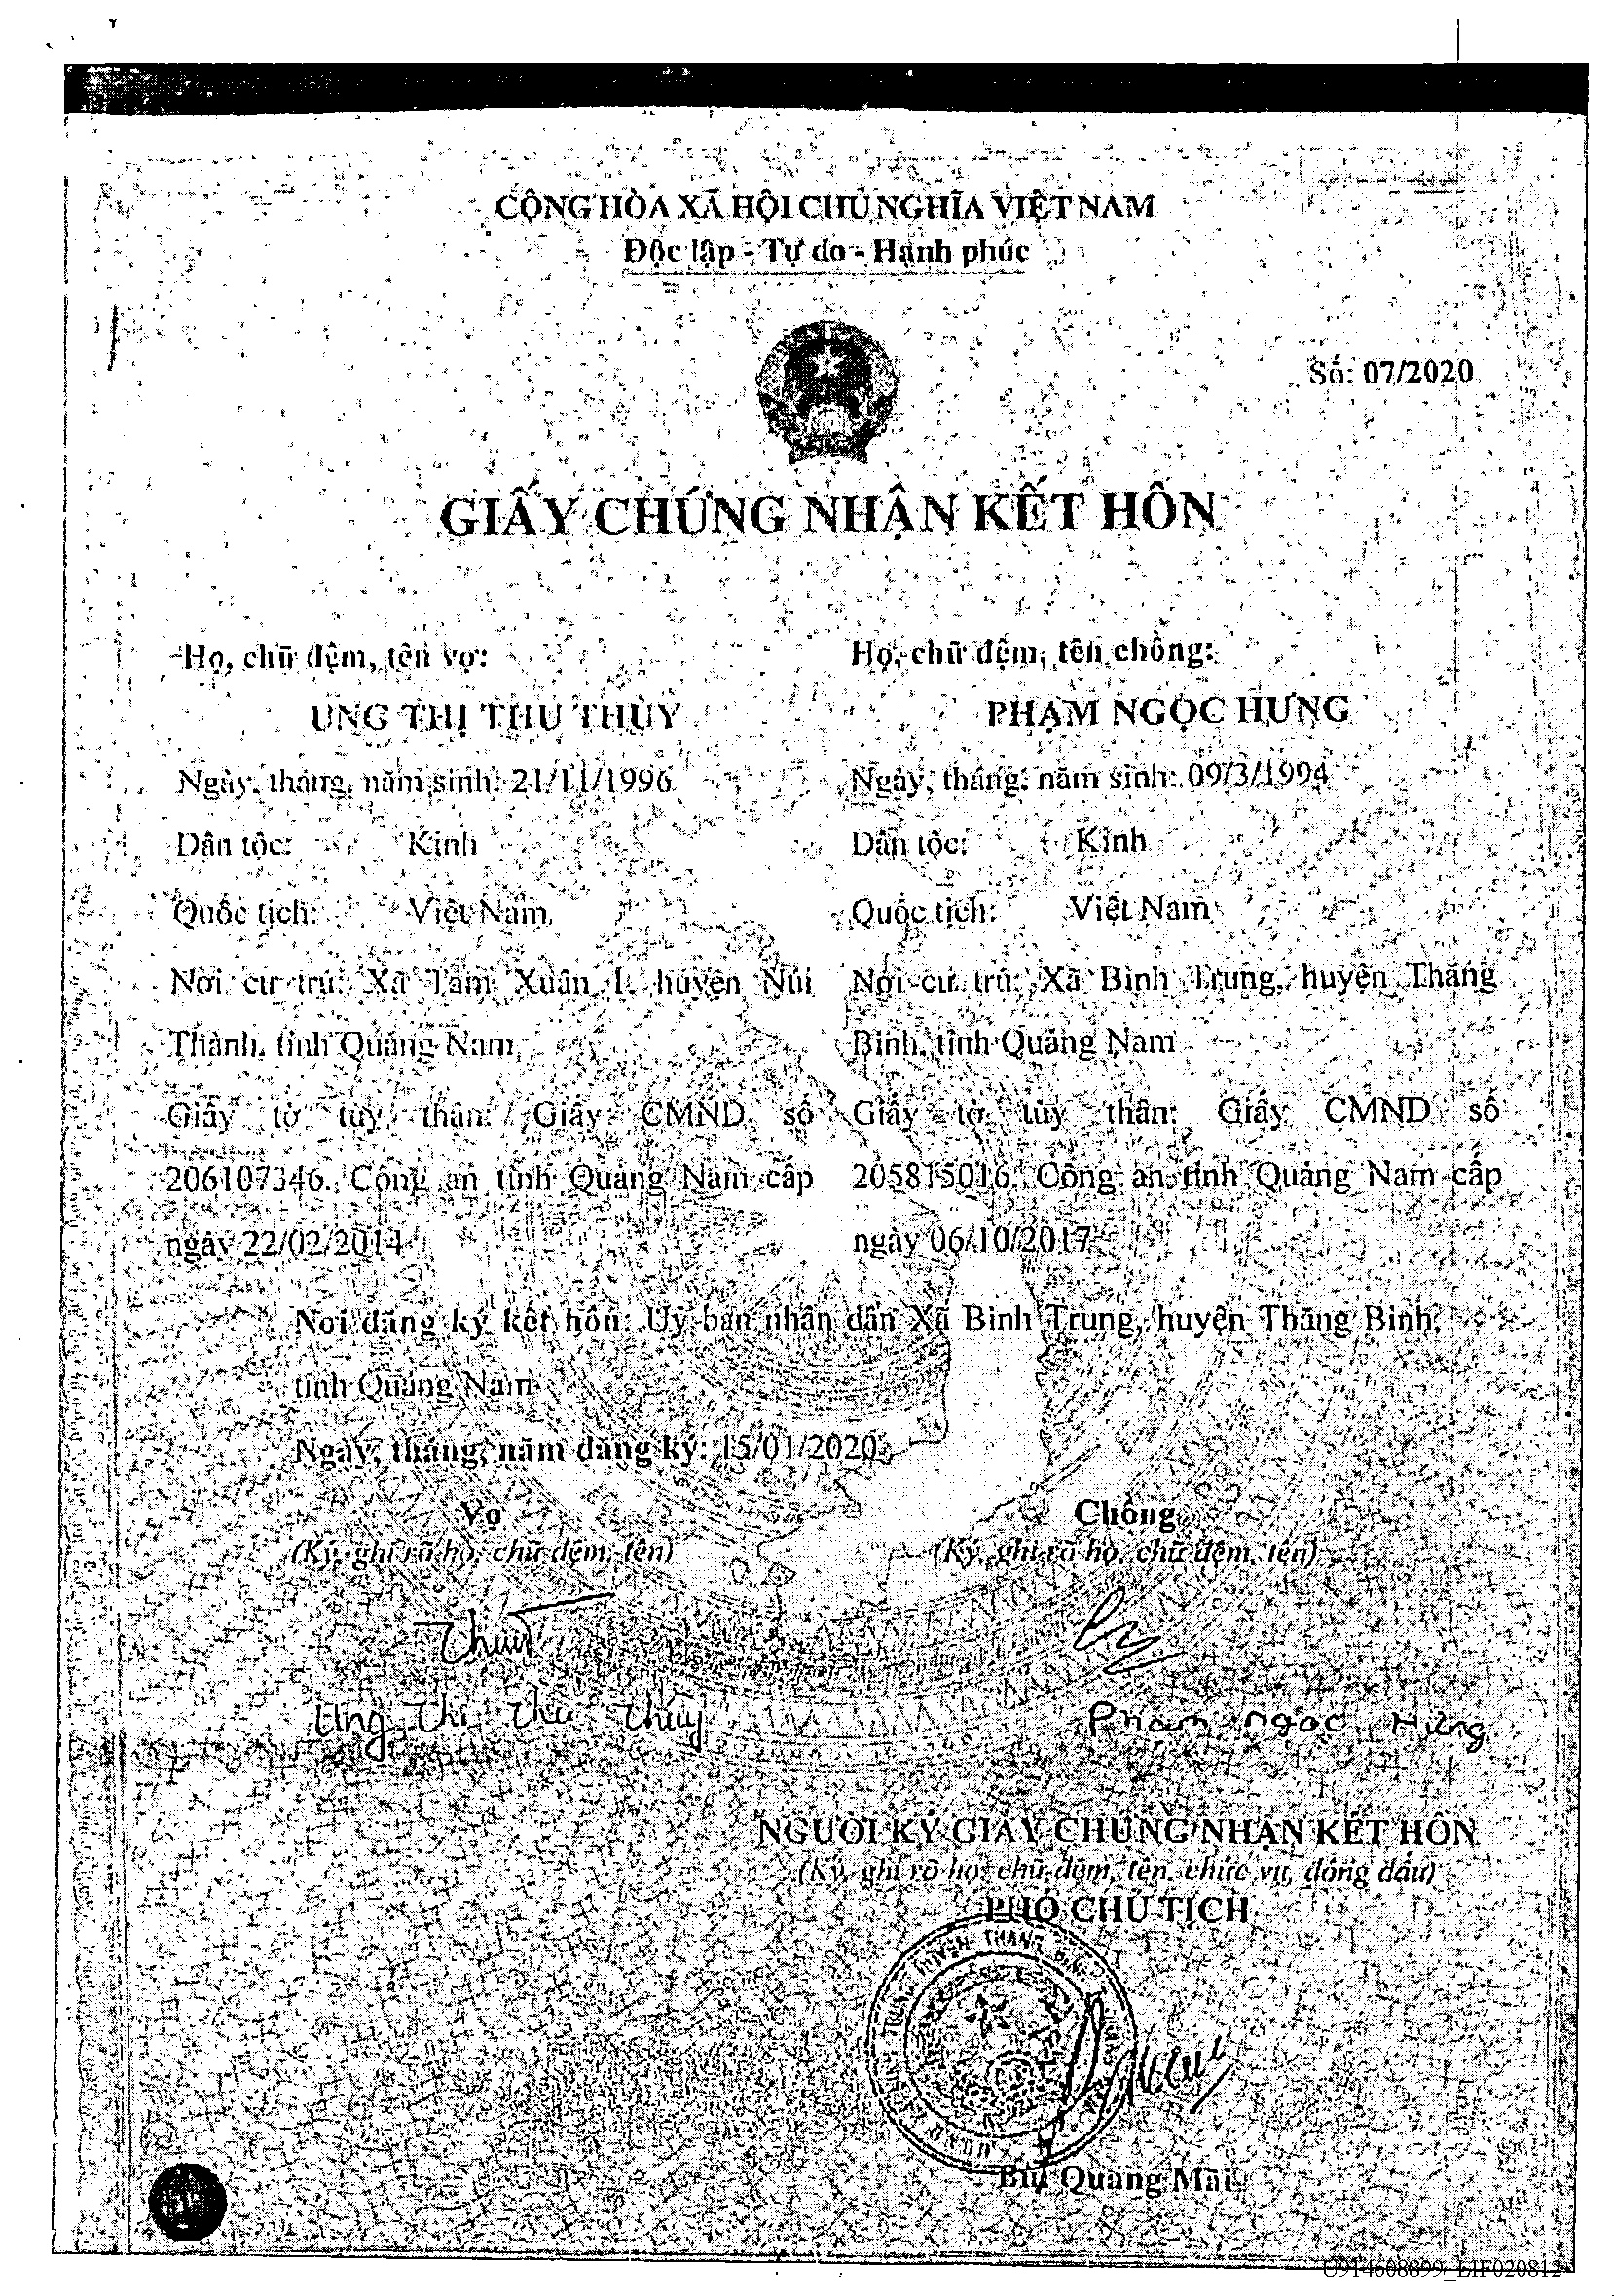 CỘNG HÒA XÃ HỘI CHỦ NGHĨA VIỆT NAM
Độc lập - Tự do - Hạnh phúc
Số: 07/2020
GIẤY CHỨNG NHẬN KẾT HÔN
Họ, chữ đệm, tên vợ:
UNG THỊ THU THÙY
Ngày, tháng, năm sinh: 21/11/1996
Dân tộc: Kinh
Quốc tịch: Việt Nam
Nơi cư trú: Xã Tam Xuân I, huyện Núi
Thành, tỉnh Quảng Nam
Giấy tờ tùy thân: Giấy CMND số
206107346, Công an tỉnh Quảng Nam cấp
ngày 22/02/2014
Họ, chữ đệm, tên chồng:
PHẠM NGỌC HƯNG
Ngày, tháng, năm sinh: 09/3/1994
Dân tộc: Kinh
Quốc tịch: Việt Nam
Nơi cư trú: Xã Bình Trung, huyện Thăng
Bình, tỉnh Quảng Nam
Giấy tờ tùy thân: Giấy CMND số
205815016, Công an tỉnh Quảng Nam cấp
ngày 06/10/2017
Nơi đăng ký kết hôn: Uỷ ban nhân dân Xã Bình Trung, huyện Thăng Bình,
tỉnh Quảng Nam
Ngày, tháng, năm đăng ký: 15/01/2020
Vợ
(Ký, ghi rõ họ, chữ đệm, tên)
Ung Thị Thu Thùy
Chồng
(Ký, ghi rõ họ, chữ đệm, tên)
Phạm Ngọc Hưng
NGƯỜI KÝ GIẤY CHỨNG NHẬN KẾT HÔN
(Ký, ghi rõ họ, chữ đệm, tên, chức vụ, đóng dấu)
PHÓ CHỦ TỊCH
Bùi Quang Mai